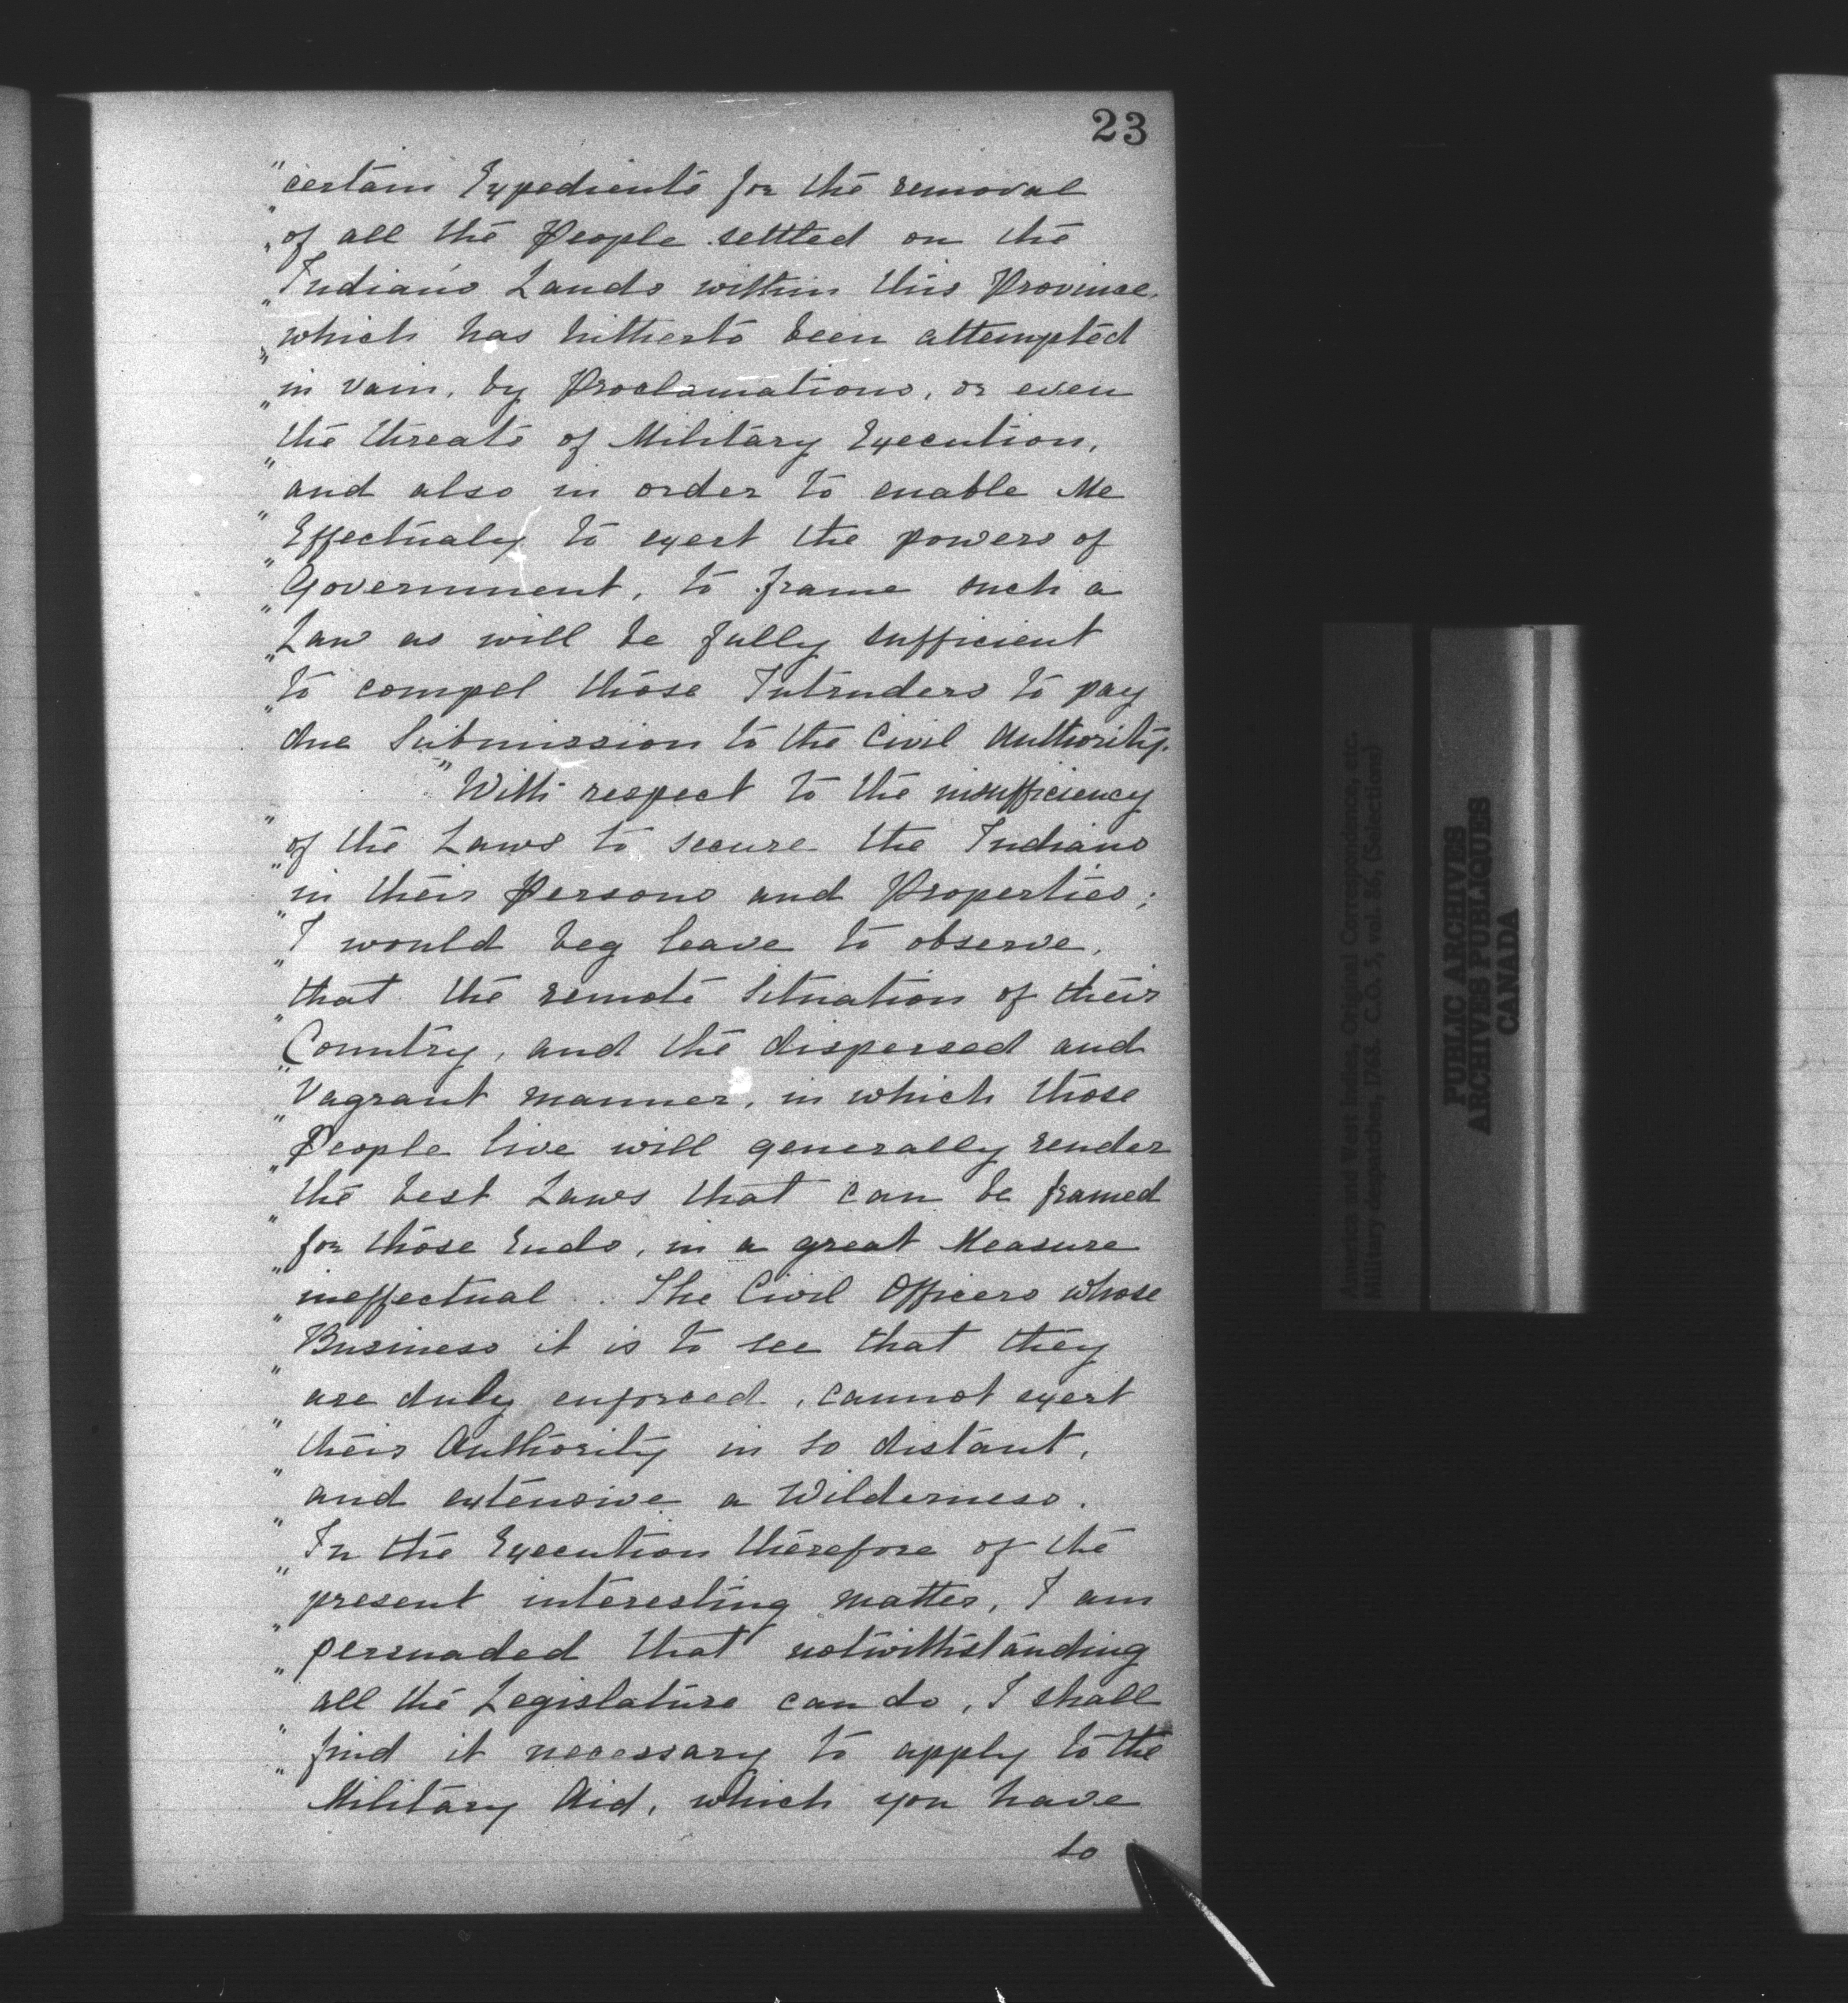 23
"certain Expedients for the removal
"of all the People settled on the
"Indian's Lands within this Province,
"which has hitherto been attempted
"in vain, by Proclamations, or even
"the threats of Military Execution,
"and also in order to enable Me
"Effectualy to exert the powers of
"Government, to frame such a
"Law as will be fully sufficient
"to compel those Intruders to pay
"due Submission to the Civil Authority.
"With respect to the insufficiency
"of the Laws to secure the Indians
"in their Persons and Properties;
"I would beg leave to observe,
"that the remote Situation of their
"Country, and the dispersed and
"Vagrant manner, in which those
"People live will generally render
"the best Laws that can be framed
"for those Ends, in a great Measure
"ineffectual. The Civil Officers whose
"Business it is to see that they
"are duly enforced, cannot exert
"their Authority in so distant,
"and extensive a Wilderness.
"In the Execution therefore of the
"present interesting matter, I am
"persuaded that notwithstanding
"all the Legislature can do, I shall
"find it necessary to apply to the
"Military Aid, which you have
so
America and West Indies, Original Correspondence, etc.
Military despatches, 1768. C.O. 5, vol. 86, (Selections)
PUBLIC ARCHIVES
ARCHIVES PUBLIQUES
CANADA